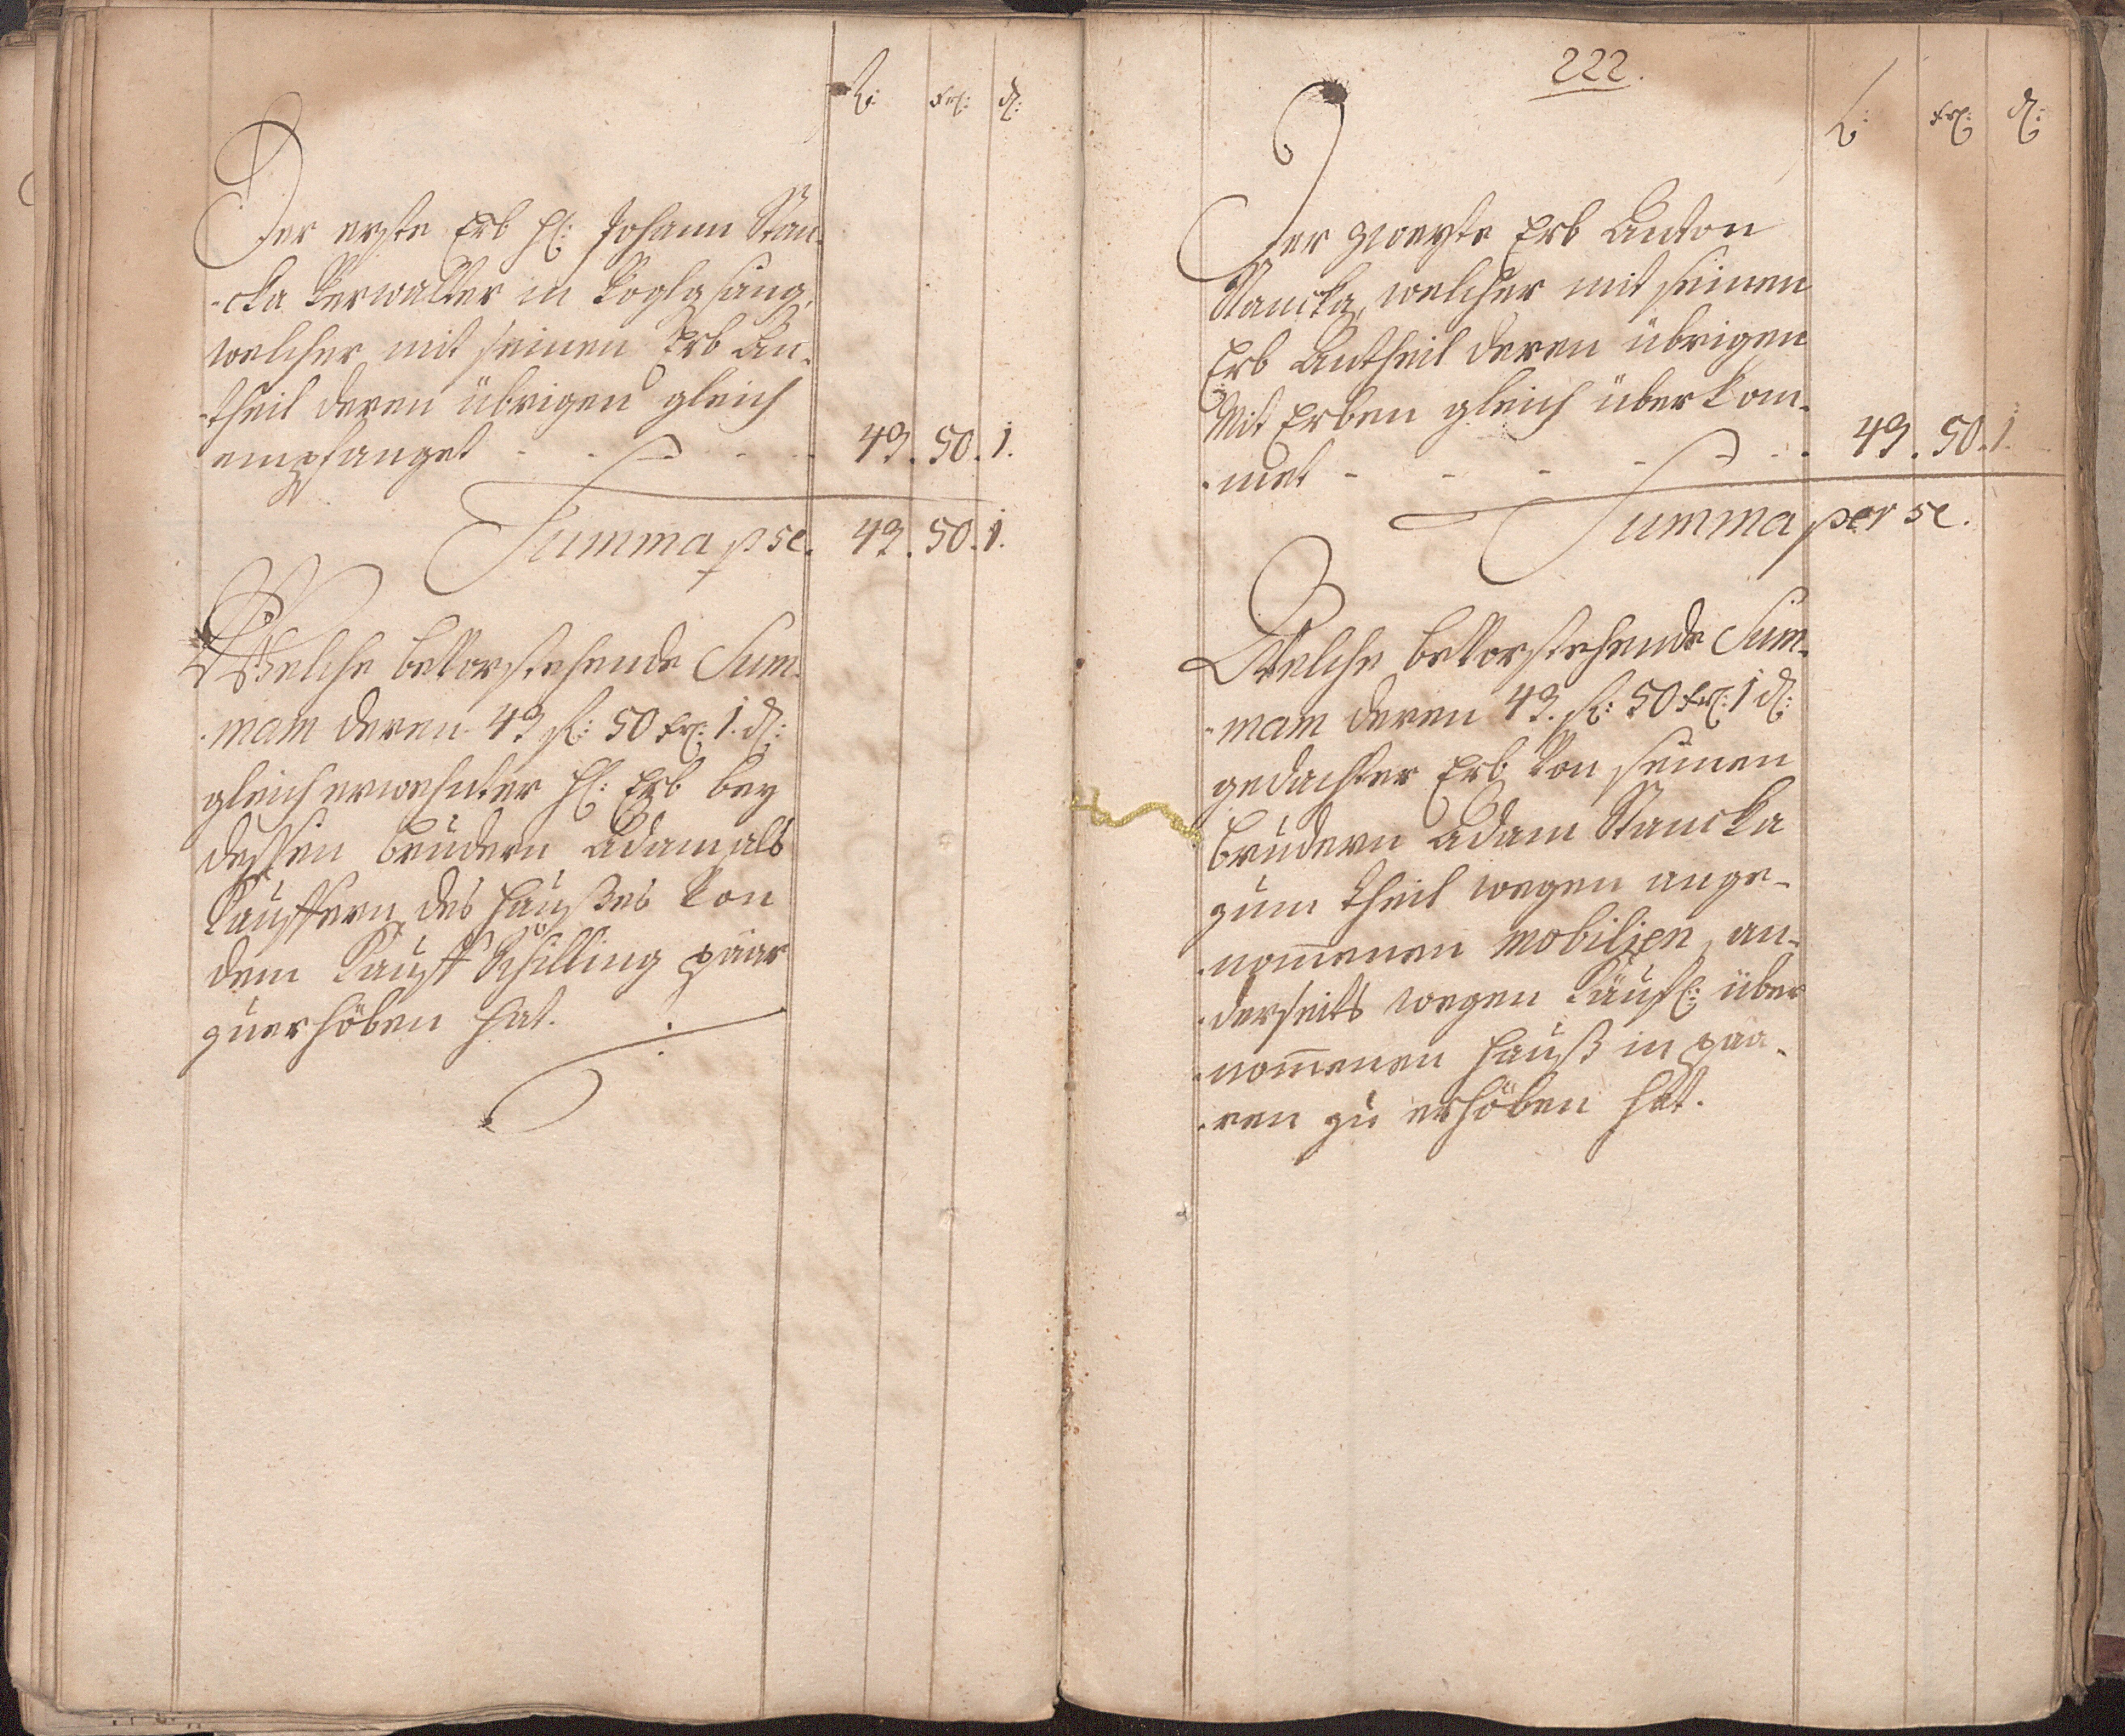 fl: xr: d:
Der erste Erb H: Johann Stan-
-cka Verwalter in Voglgsang,
welcher mit seinen Erb An-
-theil deren übrigen gleich
empfanget - - - - - 49. 50. 1.
Summa p se. 49. 50. 1.
Welche bevorstehende Sum-
-mam deren 49 fl: 50 xr: 1. d:
gleich erwehnter H: Erb bey
dessen brudern Adam als
Kauffern des Haußes von
dem Kauff Schilling paar
zuerhöben hat.
222.
fl: xr: d:
Der zweyte Erb Anton
Stancka, welcher mit seinen
Erb Antheil deren übrigen
Mit Erben gleich überkom-
-met - - - - - 49. 50. 1.
Summa per se.
Welche bevorstehende Sum-
-mam deren 49. fl: 50 xr: 1 d:
gedachter Erb von seinen
brudern Adam Stancka
zum theil wegen ange-
-nom̅enen mobilien, an-
-derseits wegen Käufl: über
-nom̅enen Hauß in paa-
-ren zu erhöben hat.